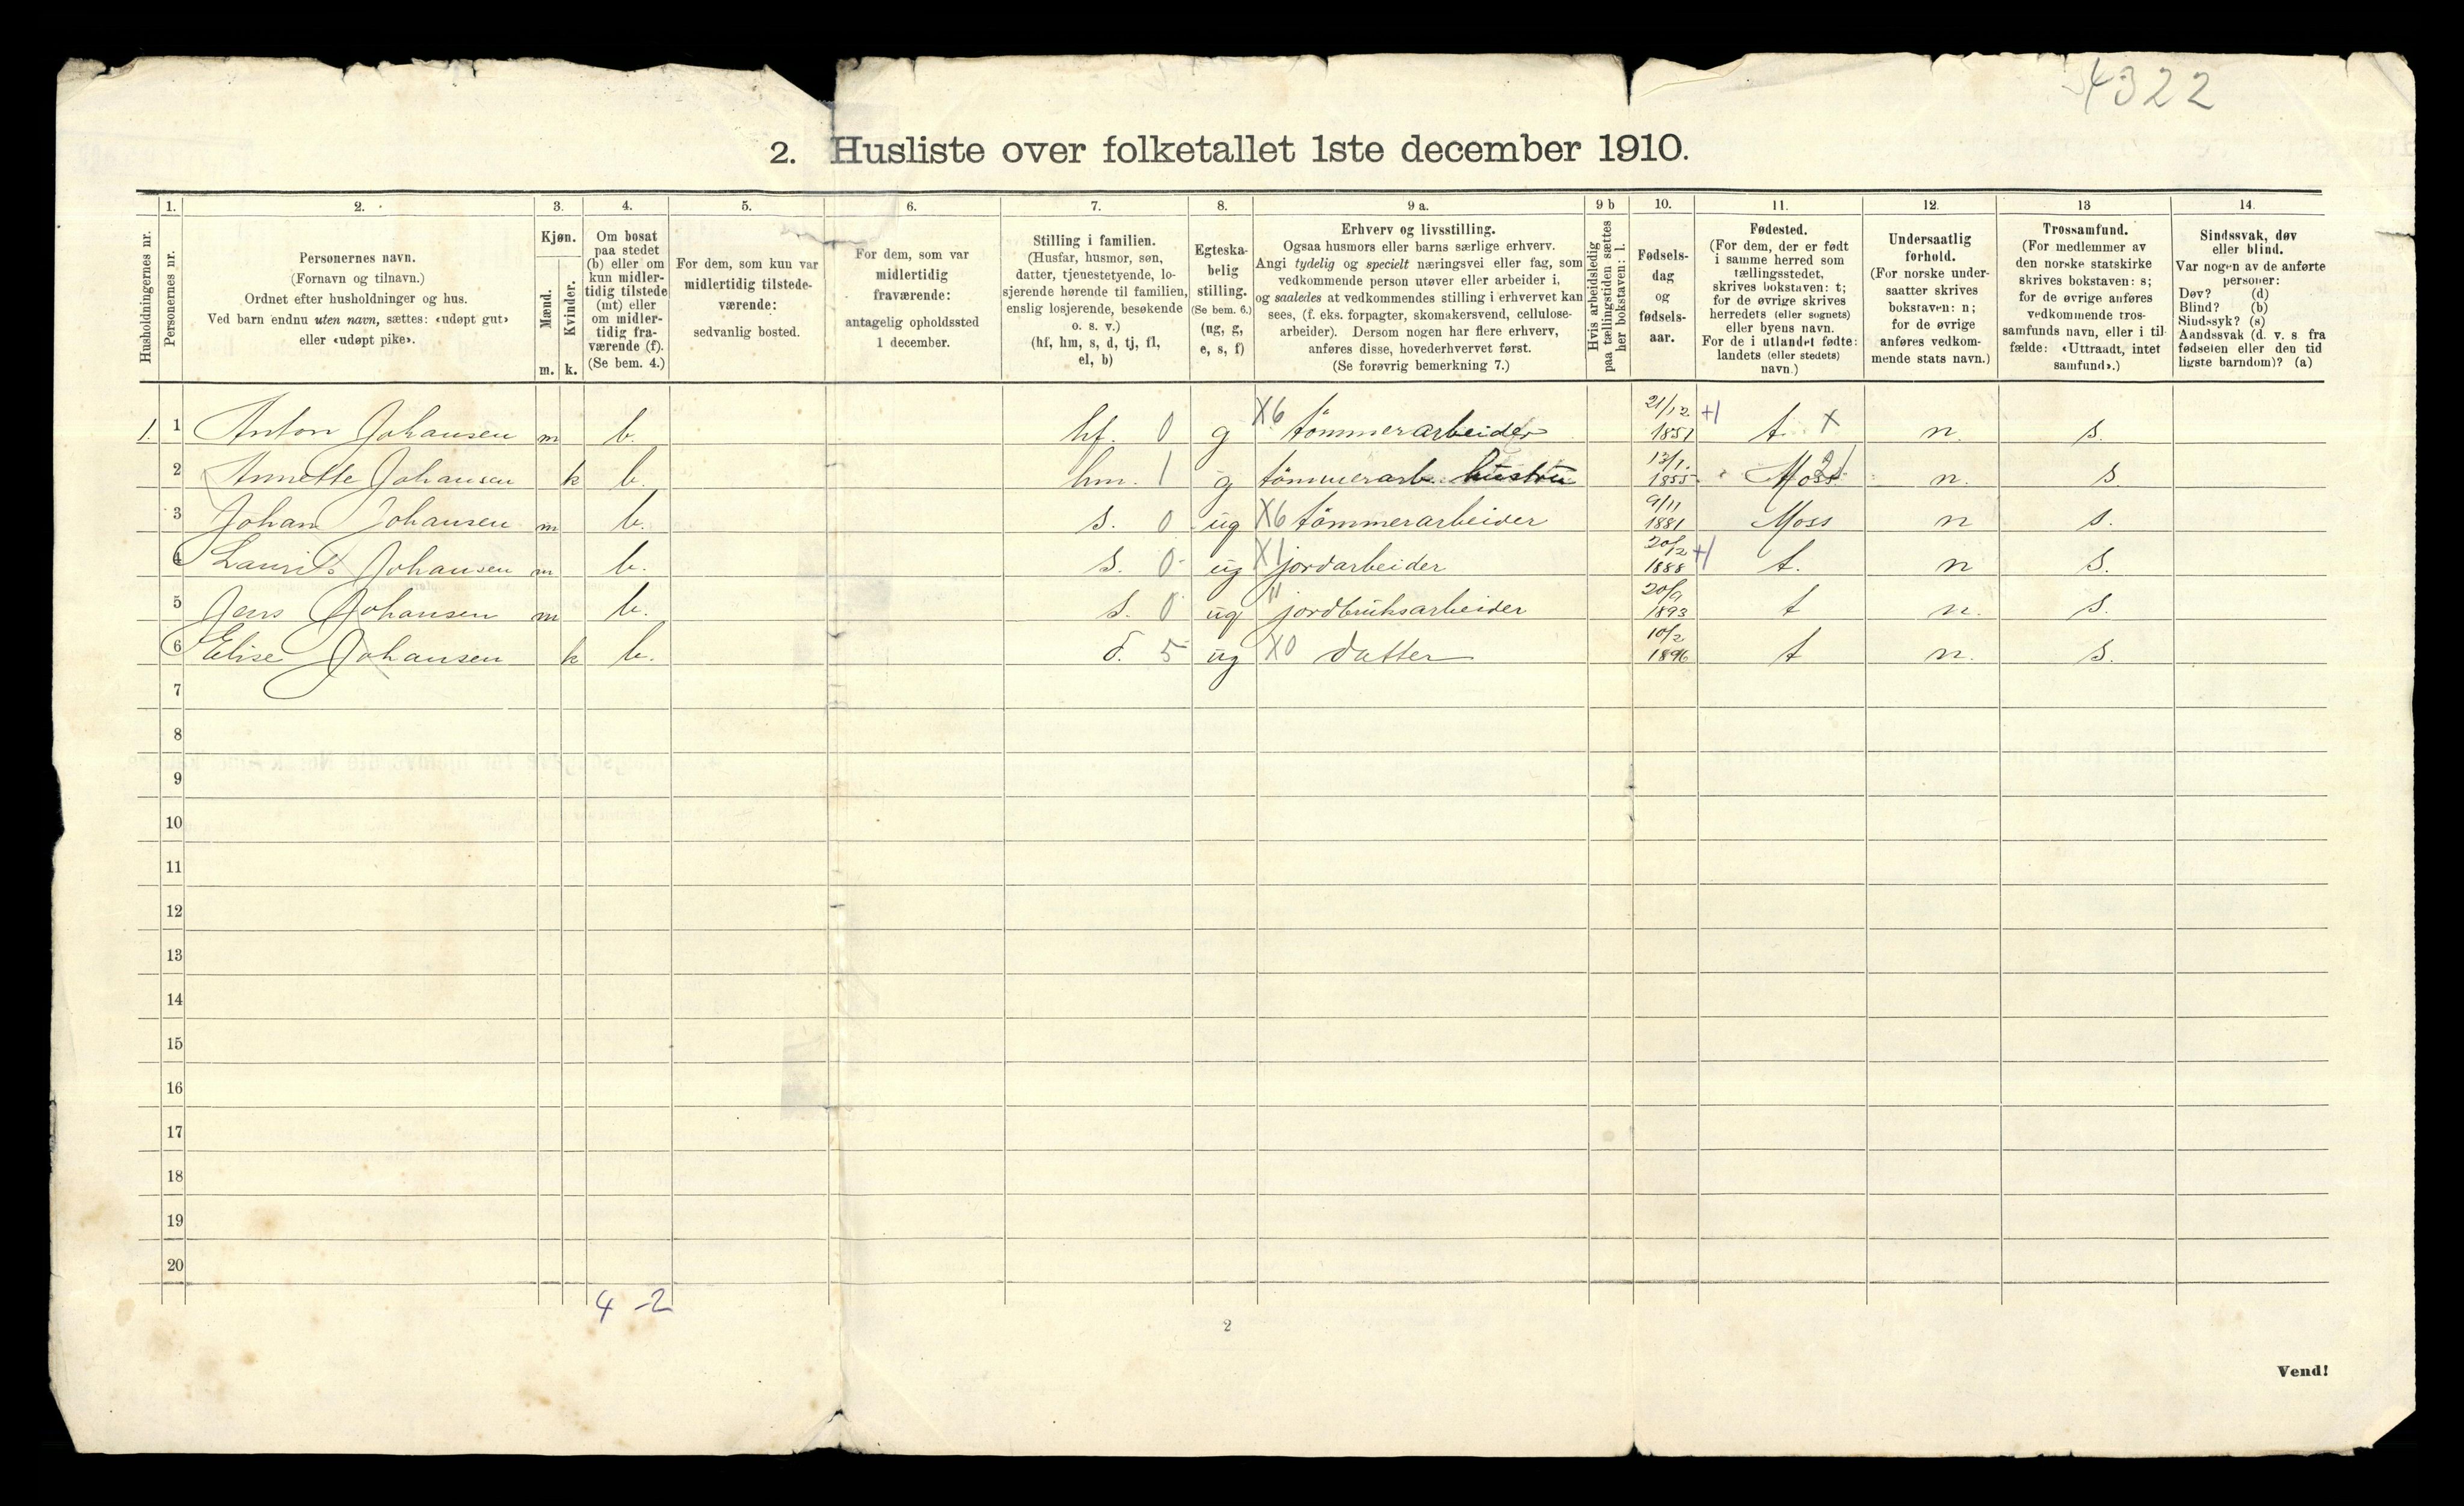 4322
2. Husliste over folketallet 1ste december 1910.
Husholdningernes nr.
1.
Personernes nr.
2.
Personernes navn.
(Fornavn og tilnavn.)
Ordnet efter husholdninger og hus.
Ved barn endnu uten navn, sættes: «udøpt gut»
eller «udøpt pike».
3.
Kjøn.
Mænd.
Kvinder.
m. k.
4.
Om bosat
paa stedet
(b) eller om
kun midler-
tidig tilstede
(mt) eller
om midler-
tidig fra-
værende (f).
(Se bem. 4.)
5.
For dem, som kun var
midlertidig tilstede-
værende:
sedvanlig bosted.
6.
For dem, som var
midlertidig
fraværende:
antagelig opholdssted
1 december.
7.
Stilling i familien.
(Husfar, husmor, søn,
datter, tjenestetyende, lo-
sjerende hørende til familien,
enslig losjerende, besøkende
o. s. v.)
(hf, hm, s, d, tj, fl,
el, b)
8.
Egteska-
belig
stilling.
(Se bem. 6.)
(ug, g,
e, s, f)
9 a.
Erhverv og livsstilling.
Ogsaa husmors eller barns særlige erhverv.
Angi tydelig og specielt næringsvei eller fag, som
vedkommende person utøver eller arbeider i,
og saaledes at vedkommendes stilling i erhvervet kan
sees, (f. eks. forpagter, skomakersvend, cellulose-
arbeider). Dersom nogen har flere erhverv,
anføres disse, hovederhvervet først.
(Se forøvrig bemerkning 7.)
9 b
Hvis arbeidsledig
paa tællingstiden sættes
her bokstaven: l.
10.
Fødsels-
dag
og
fødsels-
aar.
11.
Fødested.
(For dem, der er født
i samme herred som
tællingsstedet,
skrives bokstaven: t;
for de øvrige skrives
herredets (eller sognets)
eller byens navn.
For de i utlandet fødte:
landets (eller stedets)
navn.)
12.
Undersaatlig
forhold.
(For norske under-
saatter skrives
bokstaven: n;
for de øvrige
anføres vedkom-
mende stats navn.)
13
Trossamfund.
(For medlemmer av
den norske statskirke
skrives bokstaven: s;
for de øvrige anføres
vedkommende tros-
samfunds navn, eller i til
fælde: «Uttraadt, intet
samfund».)
14.
Sindssvak, døv
eller blind.
Var nogen av de anførte
personer:
Døv? (d)
Blind? (b)
Sindssyk? (s)
Aandssvak (d. v. s fra
fødselen eller den tid
ligste barndom)? (a)
1. 1 Anton Johansen m b. hf. 0 g X6 tömmerarbeider 21/12 1851 +1 t. X n. s.
2 Annette Johansen k b. hm. 1 g tömmerarb. hustru 13/1. 1855 Moss n. s.
3 Johan Johansen m b. s. 0 ug X6 tömmerarbeider 9/11 1881 Moss n s.
4 Laurits Johansen m b. s. 0 ug X1 jordarbeider 20/12 1888 +1 t. n s.
5 Jens Johansen m b. s. 0 ug " jordbruksarbeider 20/9 1893 t n. s.
6 Elise Johansen k b. d. 5 ug X0 datter 10/2 1896 t n. s.
7
8
9
10
11
12
13
14
15
16
17
18
19
20
4 - 2
2
Vend!